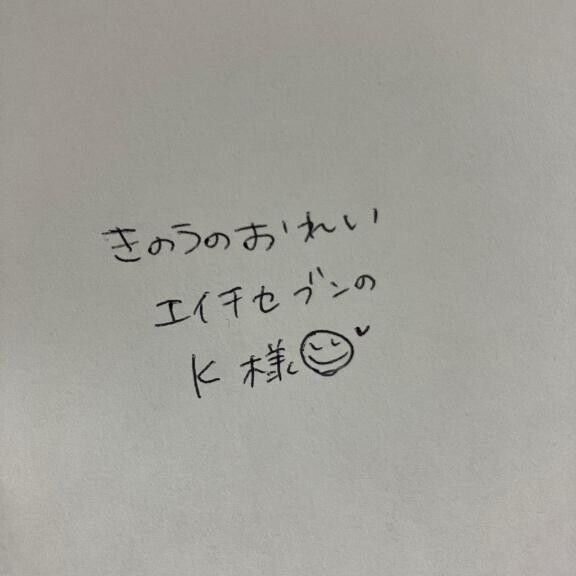 きのうのおれい
エイチセブンの
K 様